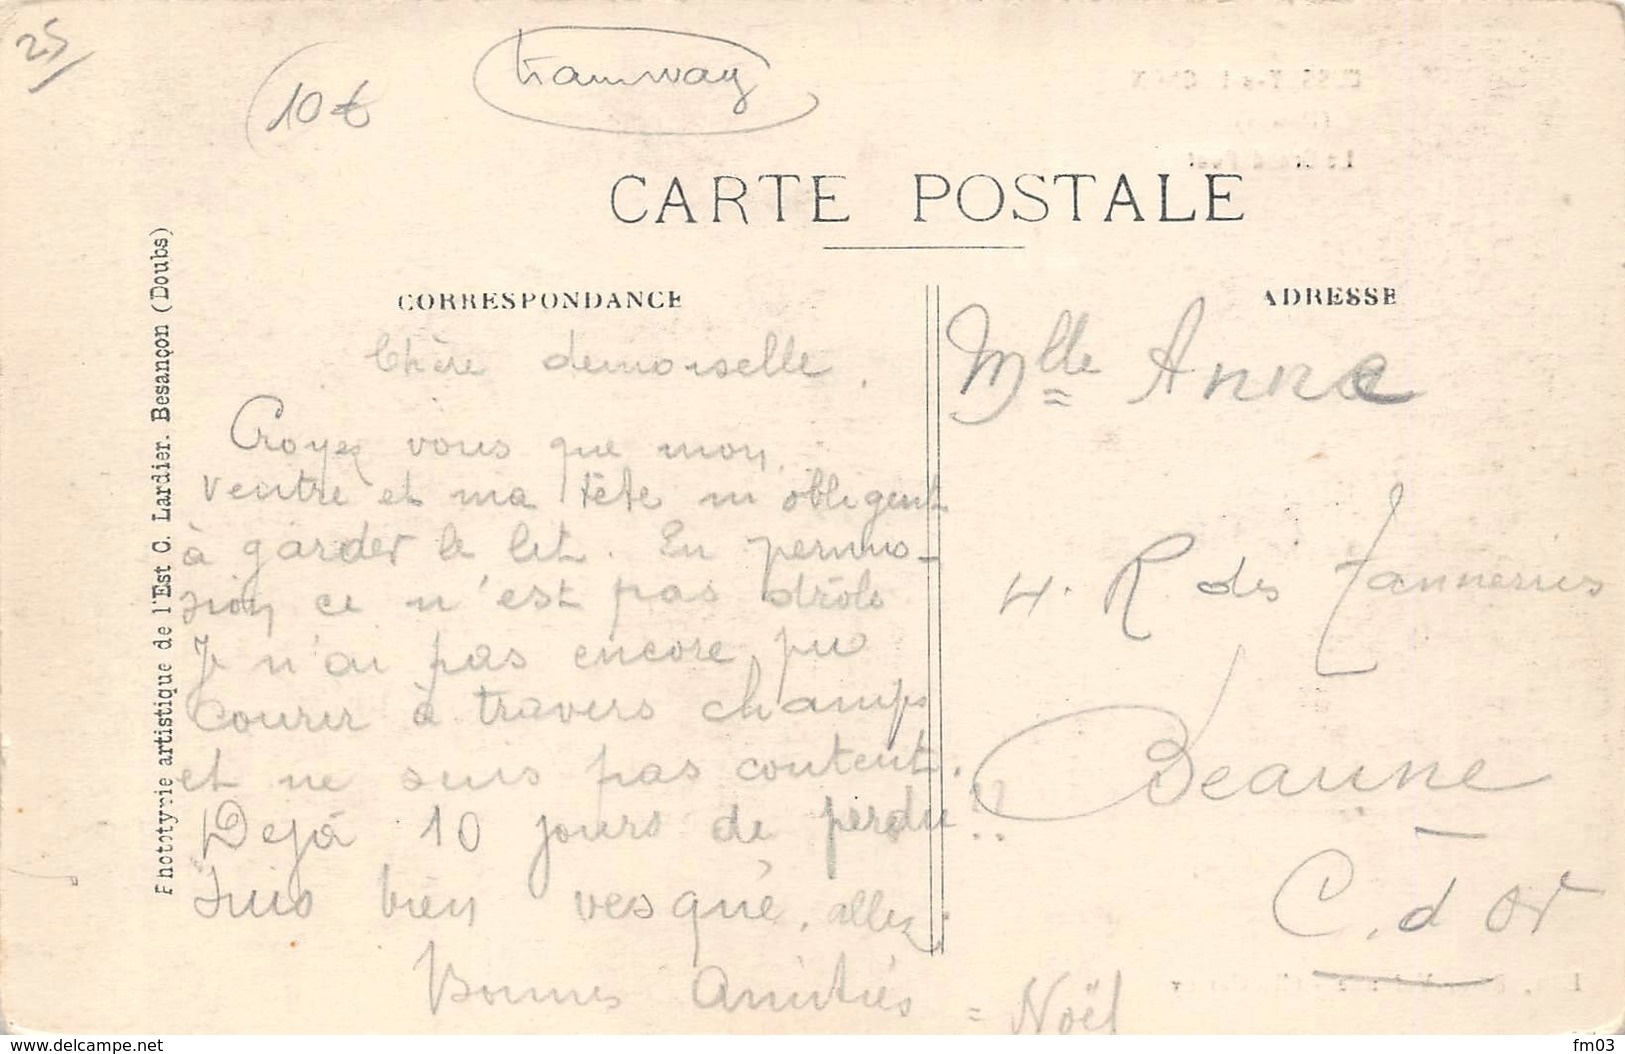 25
10€
tramway
CARTE POSTALE
CORRESPONDANCE
ADRESSE
Chère demoiselle.
Croyez vous que mon
ventre et ma tête m'obligent
à garder le lit. En permis-
sion ce n'est pas drôle
Je n'ai pas encore pu
courir à travers champs
et ne suis pas content.
Déjà 10 jours de perdu!!
Suis bien vesqué, allez.
Bonnes Amitiés
= Noël
Mlle Anna
4. R des Tanneries
Beaune
C. d'Or
Phototypie artistique de l'Est C. Lardier. Besançon (Doubs)
www.delcampe.net
fm03